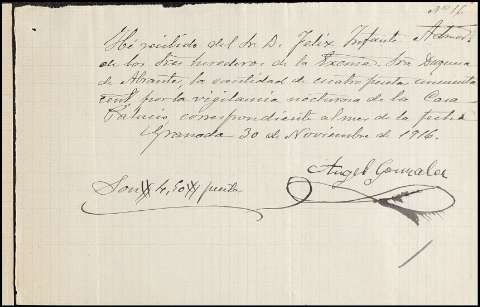 Nº 16
He recibido del Sr. D. Felix Infante Admor
de los tres herederos de la Excma. Sra Duquesa
de Abrante, la cantidad de cuatro pesetas cincuenta
cent. por la vigilancia nocturna de la Casa
Palacio, correspondiente al mes de la fecha
Granada 30 de Noviembre de 1916.
Angel Gonzalez
Son 4,50 pesetas